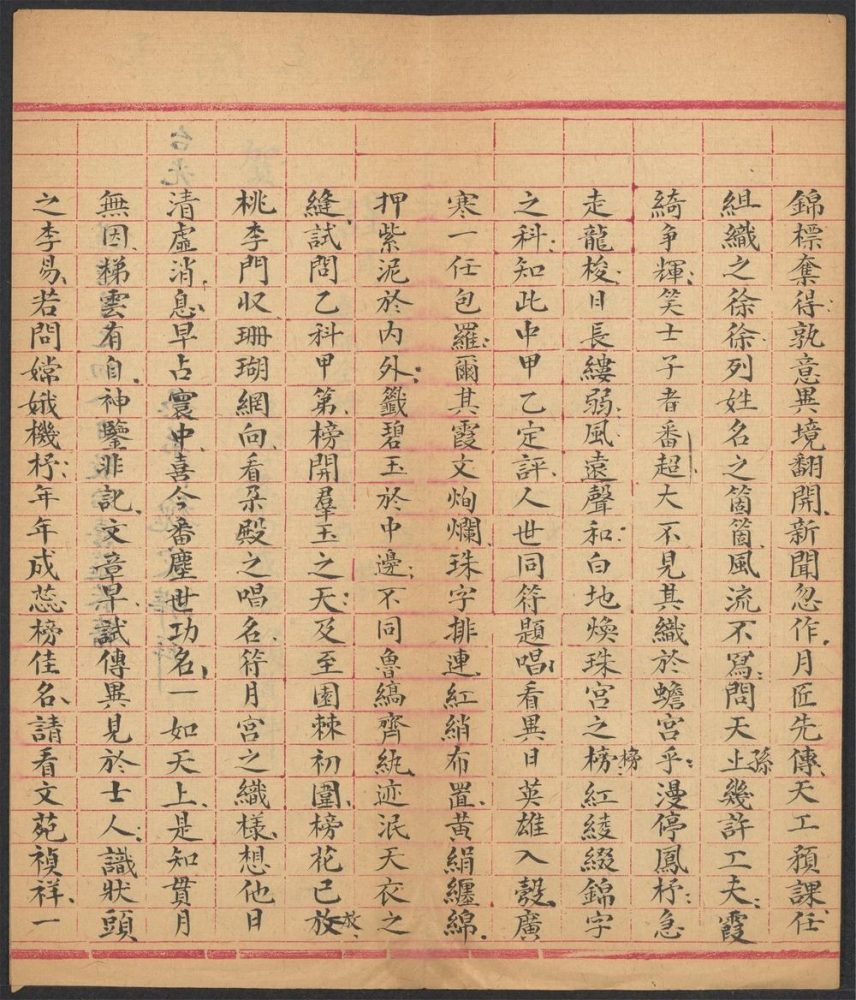 錦標奪得孰意異境翻開新聞忽作月匠先傳天工預課任
組織之徐徐列姓名之箇箇風流不寫問天孫幾許工夫霞
綺争輝笑士子者番超大不見其織於蟾宮乎漫停鳳杼急
走龍梭日長縷弱風遠聲和白地煥珠宮之榜紅綾綴錦字
之科知此中甲乙定評人世同符題唱看異日英雄入彀廣
寒一任包羅爾其霞文炯爛珠字排連紅綃布置黄絹纏綿
押紫泥於内外籤碧玉於中邊不同魯縞齊紈迹泯天衣之
縫試問乙科甲第榜開羣玉之天及至園棘初圍榜花已放
桃李門収珊瑚網向看朶殿之唱名符月宮之織樣想他日
清虛消息早占寰中喜今番塵世功名一如天上是知貫月
無因梯雲有自神鑒非訛文章早試傳異見於士人識狀頭
之李易若問嫦娥機杼年年成蕊榜佳名請看文苑禎祥一